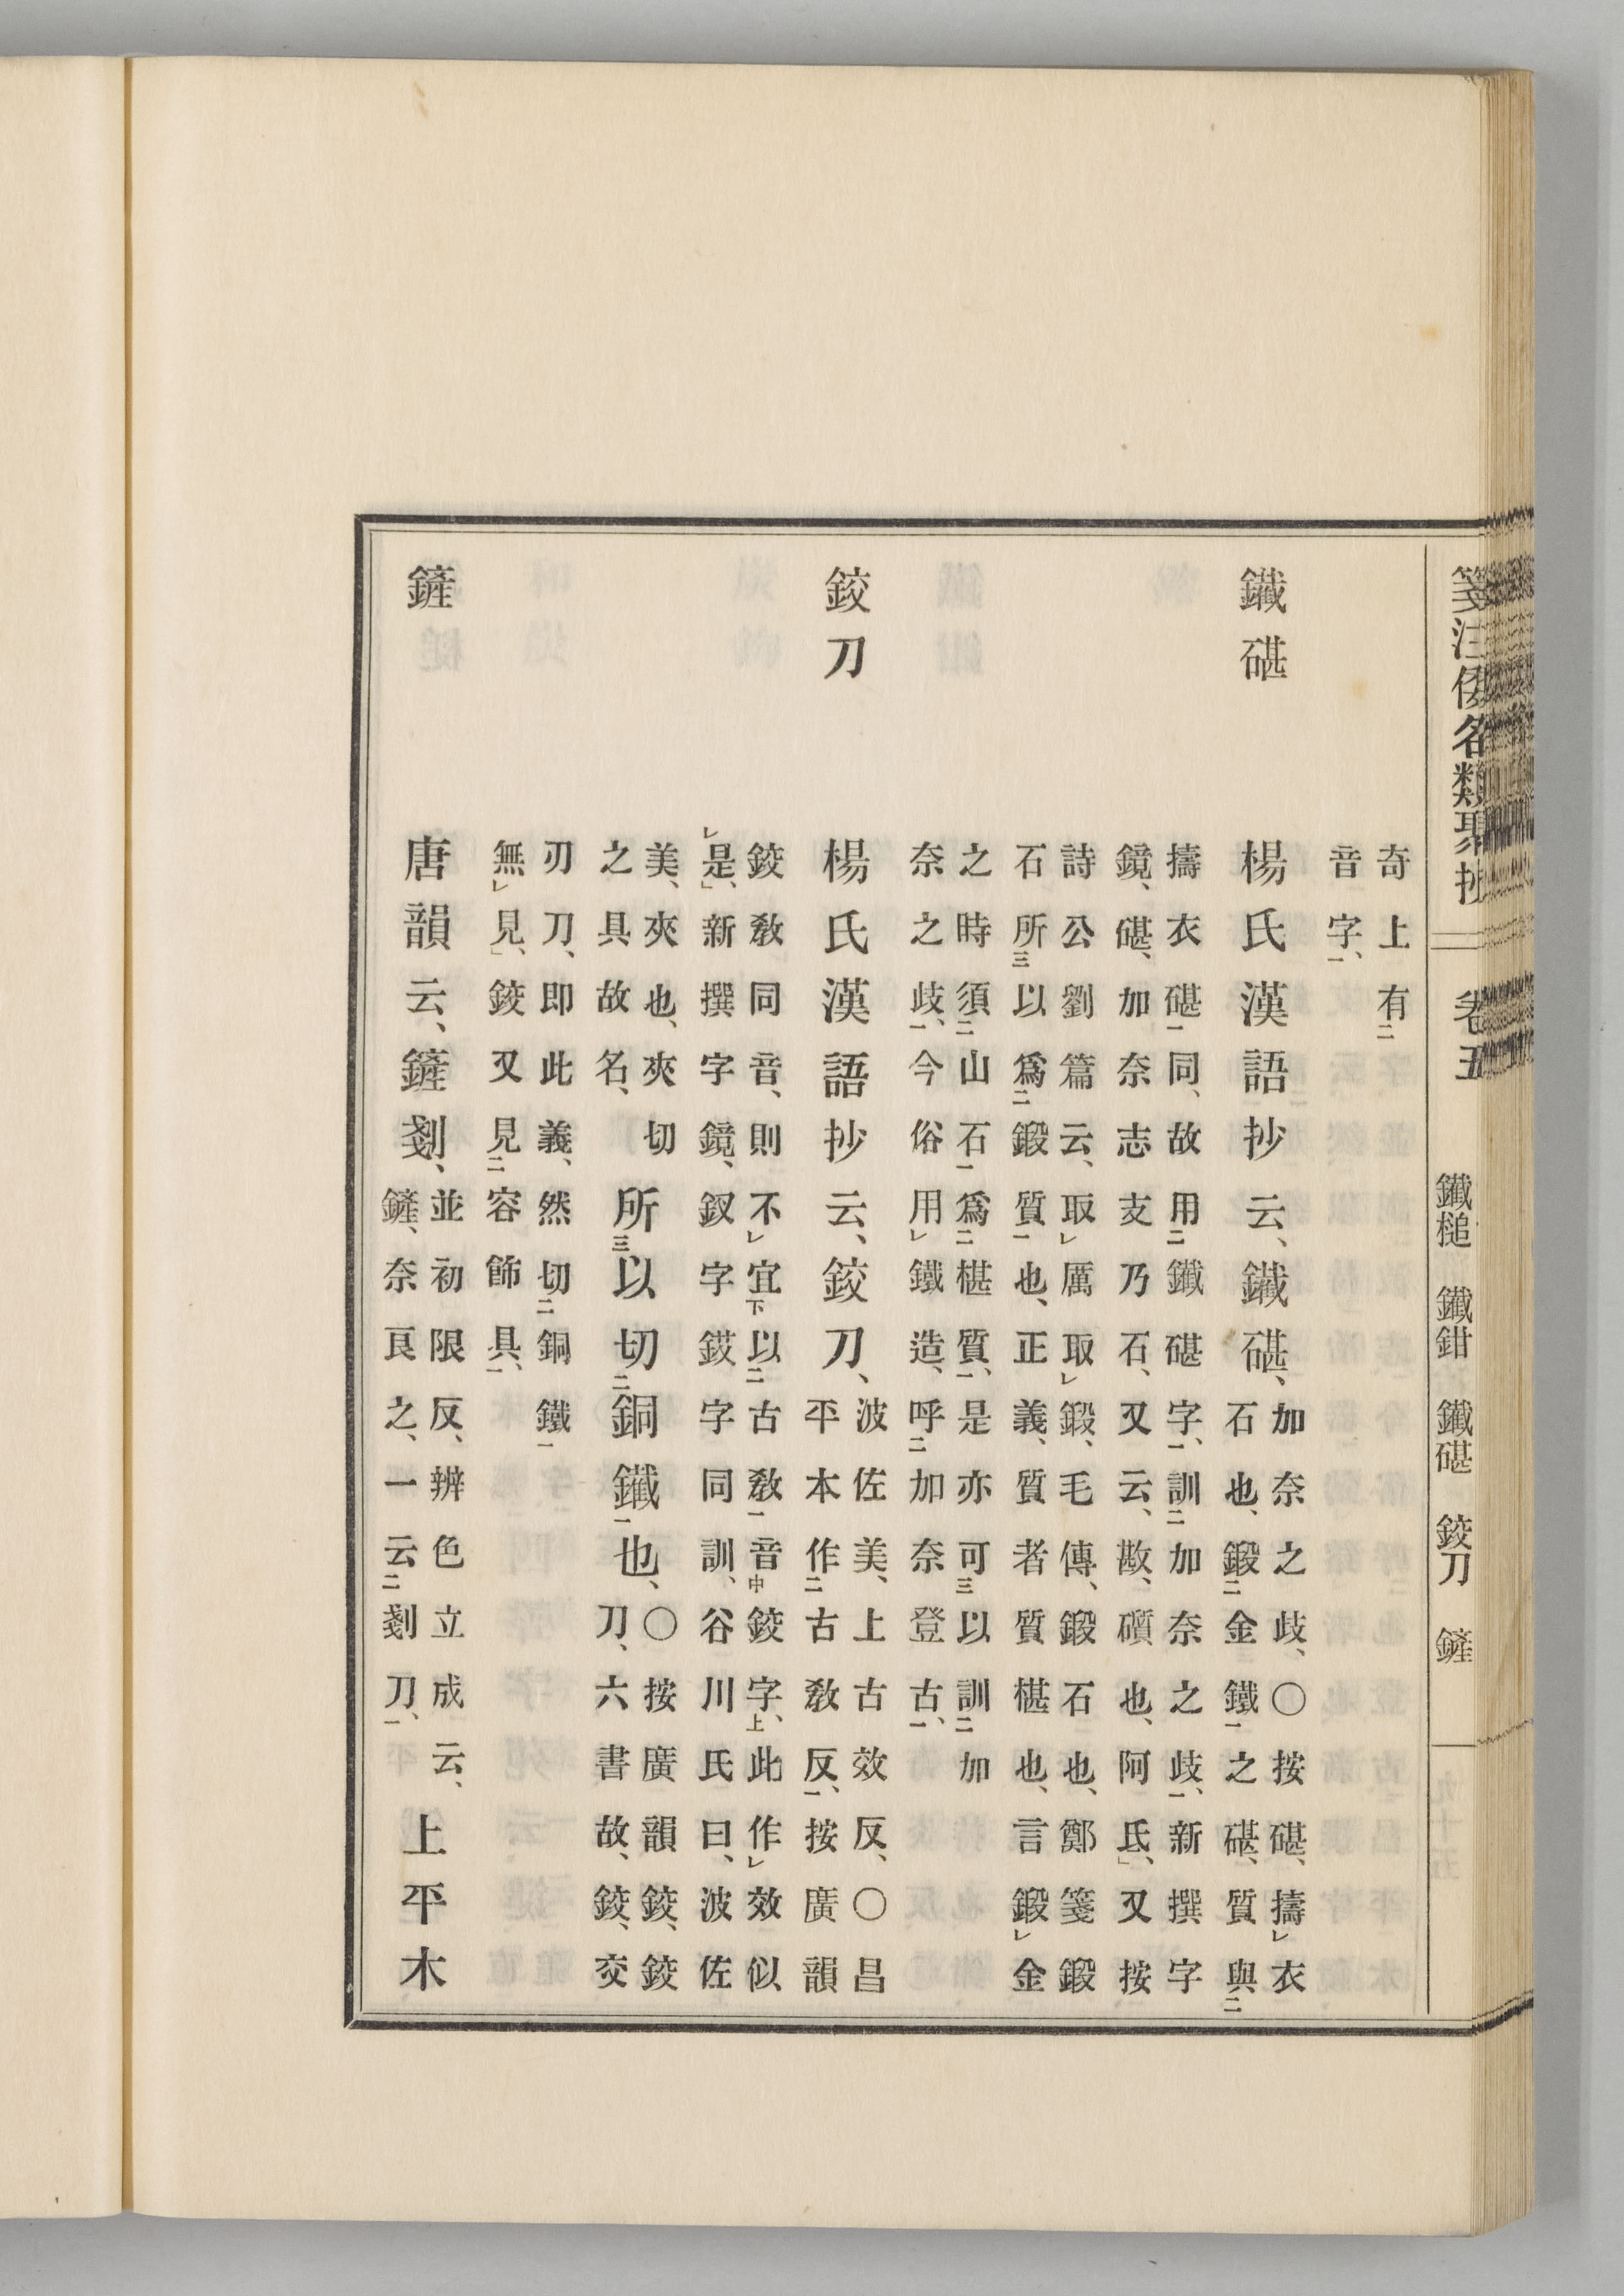 箋注倭名類聚抄 卷五 鐵槌 鐵鉗 鐵碪 鉸刀 鏟
奇上有二
音字一、
鐵碪 楊氏漢語抄云、鐵碪、
加奈之歧、〇按碪、擣レ衣
石也、鍛二金鐵一之碪、質與二
擣衣碪一同、故用二鐵碪字一、訓二加奈之歧一、新撰字
鏡、碪、加奈志支乃石、又云、㪚、礩也、阿氐、又按
詩公劉篇云、取レ厲取レ鍛、毛傳、鍛石也、鄭箋鍛
石所三以爲二鍛質一也、正義、質者質椹也、言鍛レ金
之時須二山石一爲二椹質一、是亦可三以訓二加
奈之歧一、今俗用レ鐵造、呼二加奈登古一、
鉸刀 楊氏漢語抄云、鉸刀、
波佐美、上古效反、〇昌
平本作二古敎反一、按廣韻
鉸敎同音、則不レ宜下以二古敎一音中鉸字上、此作レ效似
レ是、新撰字鏡、釵字鋑字同訓、谷川氏曰、波佐
美、夾也、夾切
之具故名、
所三以切二銅鐵一也、
〇按廣韻、鉸、鉸
刀、六書故、鉸、交
刃刀、即此義、然切二銅鐵一
無レ見、鉸又見二容飾具一、
鏟 唐韻云、鏟剗、
並初限反、辨色立成云、
鏟、奈良之、一云二剗刀一、
上平木